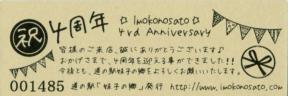 祝 4周年 ☆ Imokonosato ☆
4rd Anniversary
皆様のご来店、誠にありがとうございます♪
おかげさまで、4周年を迎える事ができました!!
今後とも、道の駅妹子の郷をよろしくお願いいたします。
001485 道の駅「妹子の郷」発行 http://www.imokonosato.com